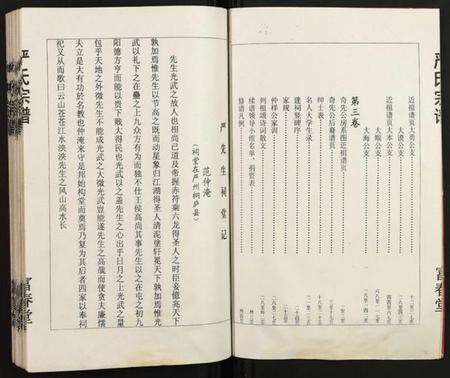 严氏宗谱
富春堂
近祖谱页大杰公支
大谟公支
近祖谱页大本公支
大顺公支
大海公支
第三卷
奇先公房系图近祖谱页
奇先公后裔谱页
绅士表
名人大学生录
建祠竖碑序
家规
仲祥公家训
列祖颂诗词散文
续谱领导小组名单、捐资表
修谱凡例
严先生祠堂记
范仲淹
(祠堂在严州桐庐县)
先生光武之故人也相尚已道及帝握赤符乘六龙得圣人之时臣妾亿兆天下
孰加焉惟先生以节高之既而动星象归江湖得圣人清泥塗轩冕天下孰加焉惟光
武以礼下之在蠱之上九众方有为而独不仕王侯高尚其事先生以之在屯之初九
阳德方亨而能以贵下贱大得民也光武以之盖先生之心出乎日月之上光武之量
包乎天地之外微先生不能成光武之大微光武岂能遂先生之高哉而使贪夫廉懦
夫立是大有功於名教也仲淹来守是邦始构堂而奠焉乃复为其后者四家以奉祠
祀又从而歌曰云山苍苍江水泱泱先生之风山高水长
严氏宗谱
富春堂